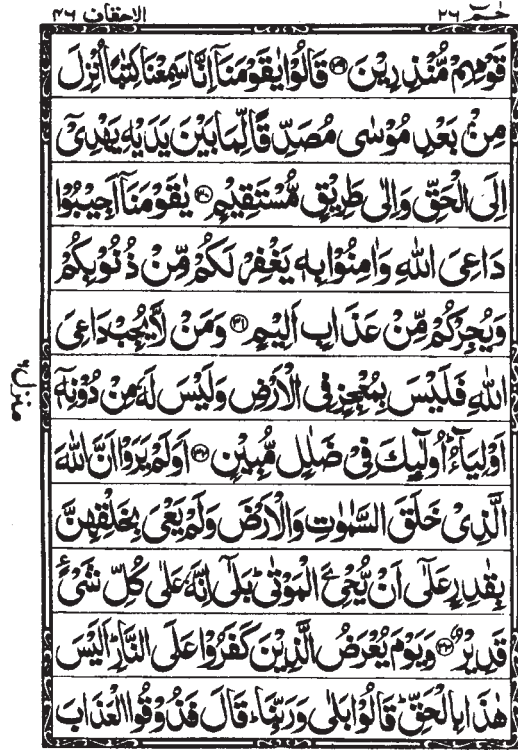 حٰمٓ ٢٦ الاحقاف ٤٦
قَوْمِهِمْ مُّنْذِرِيْنَ ﴿٢٩﴾ قَالُوْا يٰقَوْمَنَاۤ اِنَّا سَمِعْنَا كِتٰبًا اُنْزِلَ
مِنْۢ بَعْدِ مُوْسٰى مُصَدِّقًا لِّمَا بَيْنَ يَدَيْهِ يَهْدِيْۤ
اِلَى الْحَقِّ وَاِلٰى طَرِيْقٍ مُّسْتَقِيْمٍ ﴿٣٠﴾ يٰقَوْمَنَاۤ اَجِيْبُوْا
دَاعِيَ اللّٰهِ وَاٰمِنُوْا بِهٖ يَغْفِرْ لَكُمْ مِّنْ ذُنُوْبِكُمْ
وَيُجِرْكُمْ مِّنْ عَذَابٍ اَلِيْمٍ ﴿٣١﴾ وَمَنْ لَّا يُجِبْ دَاعِيَ
اللّٰهِ فَلَيْسَ بِمُعْجِزٍ فِى الْاَرْضِ وَلَيْسَ لَهٗ مِنْ دُوْنِهٖۤ
اَوْلِيَآءُ ؕ اُولٰٓئِكَ فِيْ ضَلٰلٍ مُّبِيْنٍ ﴿٣٢﴾ اَوَلَمْ يَرَوْا اَنَّ اللّٰهَ
الَّذِيْ خَلَقَ السَّمٰوٰتِ وَالْاَرْضَ وَلَمْ يَعْيَ بِخَلْقِهِنَّ
بِقٰدِرٍ عَلٰۤى اَنْ يُّحْيِۦَ الْمَوْتٰى ؕ بَلٰۤى اِنَّهٗ عَلٰى كُلِّ شَيْءٍ
قَدِيْرٌ ﴿٣٣﴾ وَيَوْمَ يُعْرَضُ الَّذِيْنَ كَفَرُوْا عَلَى النَّارِ ؕ اَلَيْسَ
هٰذَا بِالْحَقِّ ؕ قَالُوْا بَلٰى وَرَبِّنَا ؕ قَالَ فَذُوْقُوا الْعَذَابَ
منزل ٦